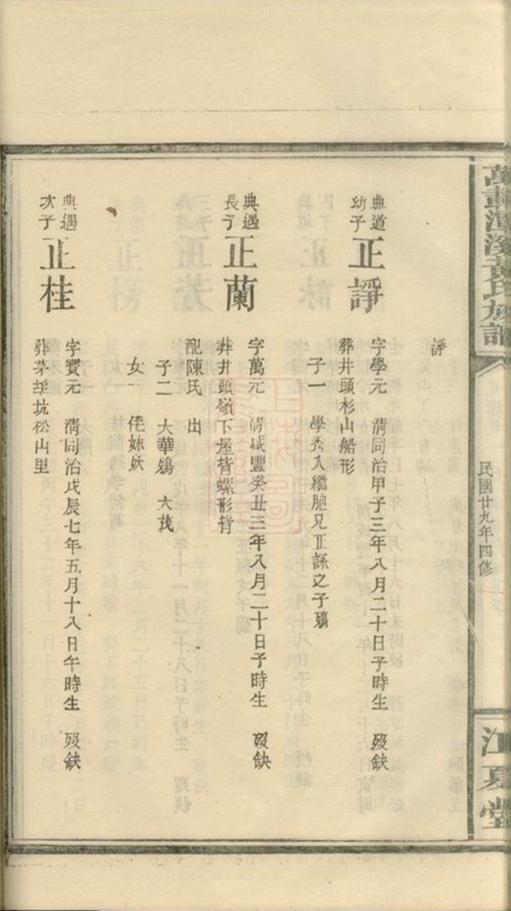 民國廿九年四修
江夏堂
諍
典道
幼子
正諍
字學元 清同治甲子三年八月二十日子時生 歿缺
葬井頭杉山船形
子一 學秀入繼胞兄正詠之子殤
典遇
長子
正蘭
字萬元 清咸豐癸丑三年八月二十日子時生 歿缺
葬井頭嶺下屋背螺形背
配陳氏 出
子二 大華殤 大茂
女一 侄妹妖
典遇
次子
正桂
字寶元 清同治戊辰七年五月十八日午時生 歿缺
葬茅坪坑松山里